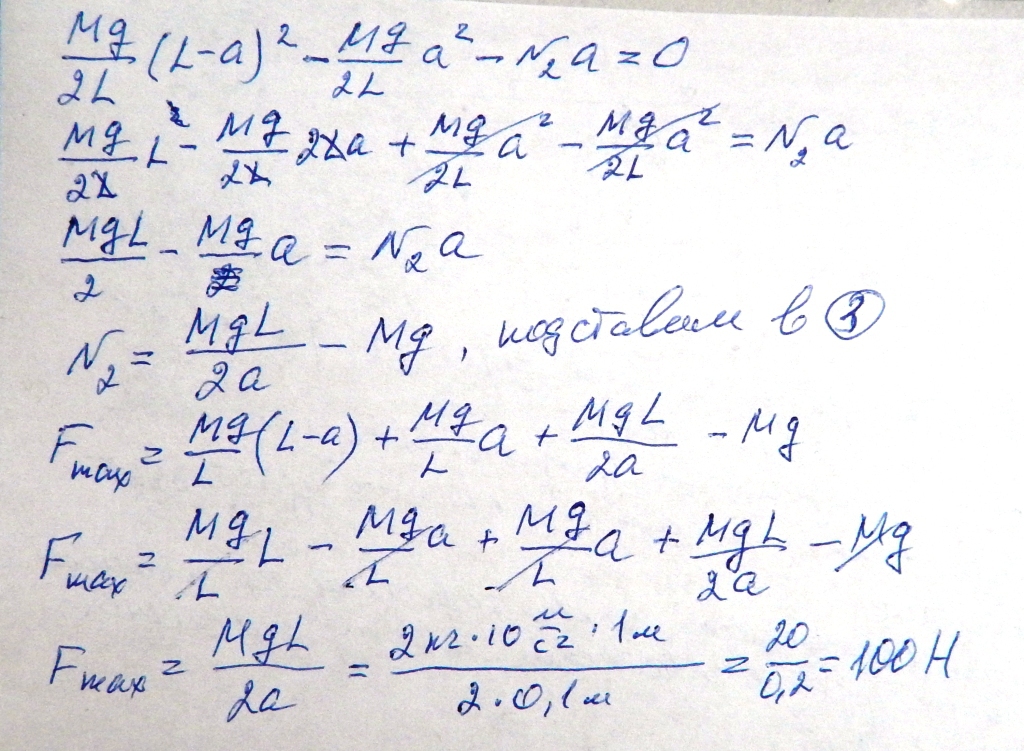 Mg/2L (L-a)² - Mg/2L a² - N₂a = 0
Mg/2L L² - Mg/2L 2La + Mg/2L a² - Mg/2L a² = N₂a
MgL/2 - Mg a = N₂a
N₂ = MgL/2a - Mg, подставим в ③
Fmax = Mg/L (L-a) + Mg/L a + MgL/2a - Mg
Fmax = Mg/L L - Mg/L a + Mg/L a + MgL/2a - Mg
Fmax = MgL/2a = 2кг·10 м/с²·1м / 2·0,1м = 20/0,2 = 100Н